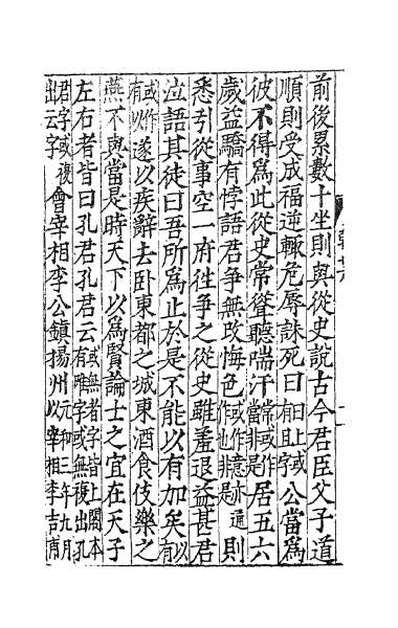 前後累數十坐則與從史說古今君臣父子道
順則受成福逆輒危辱誅死曰日上或有且字公當為
彼不得為此從史常聳聽喘汗常或作當非是居五六
歲益驕有悖語君爭無改悔色或作意亦通作也非是則
悉引從事空一府往爭之從史雖羞退益甚君
泣語其徒曰吾所為止於是不能以有加矣以有
或作有以遂以疾辭去臥東都之城東酒食伎樂之
燕不與當是時天下以為賢論士之宜在天子
左右者皆曰孔君孔君云或無者字皆上閣本有雖字或無複出孔
君字或複出云字會宰相李公鎮揚州元和三年九月以宰相李吉甫